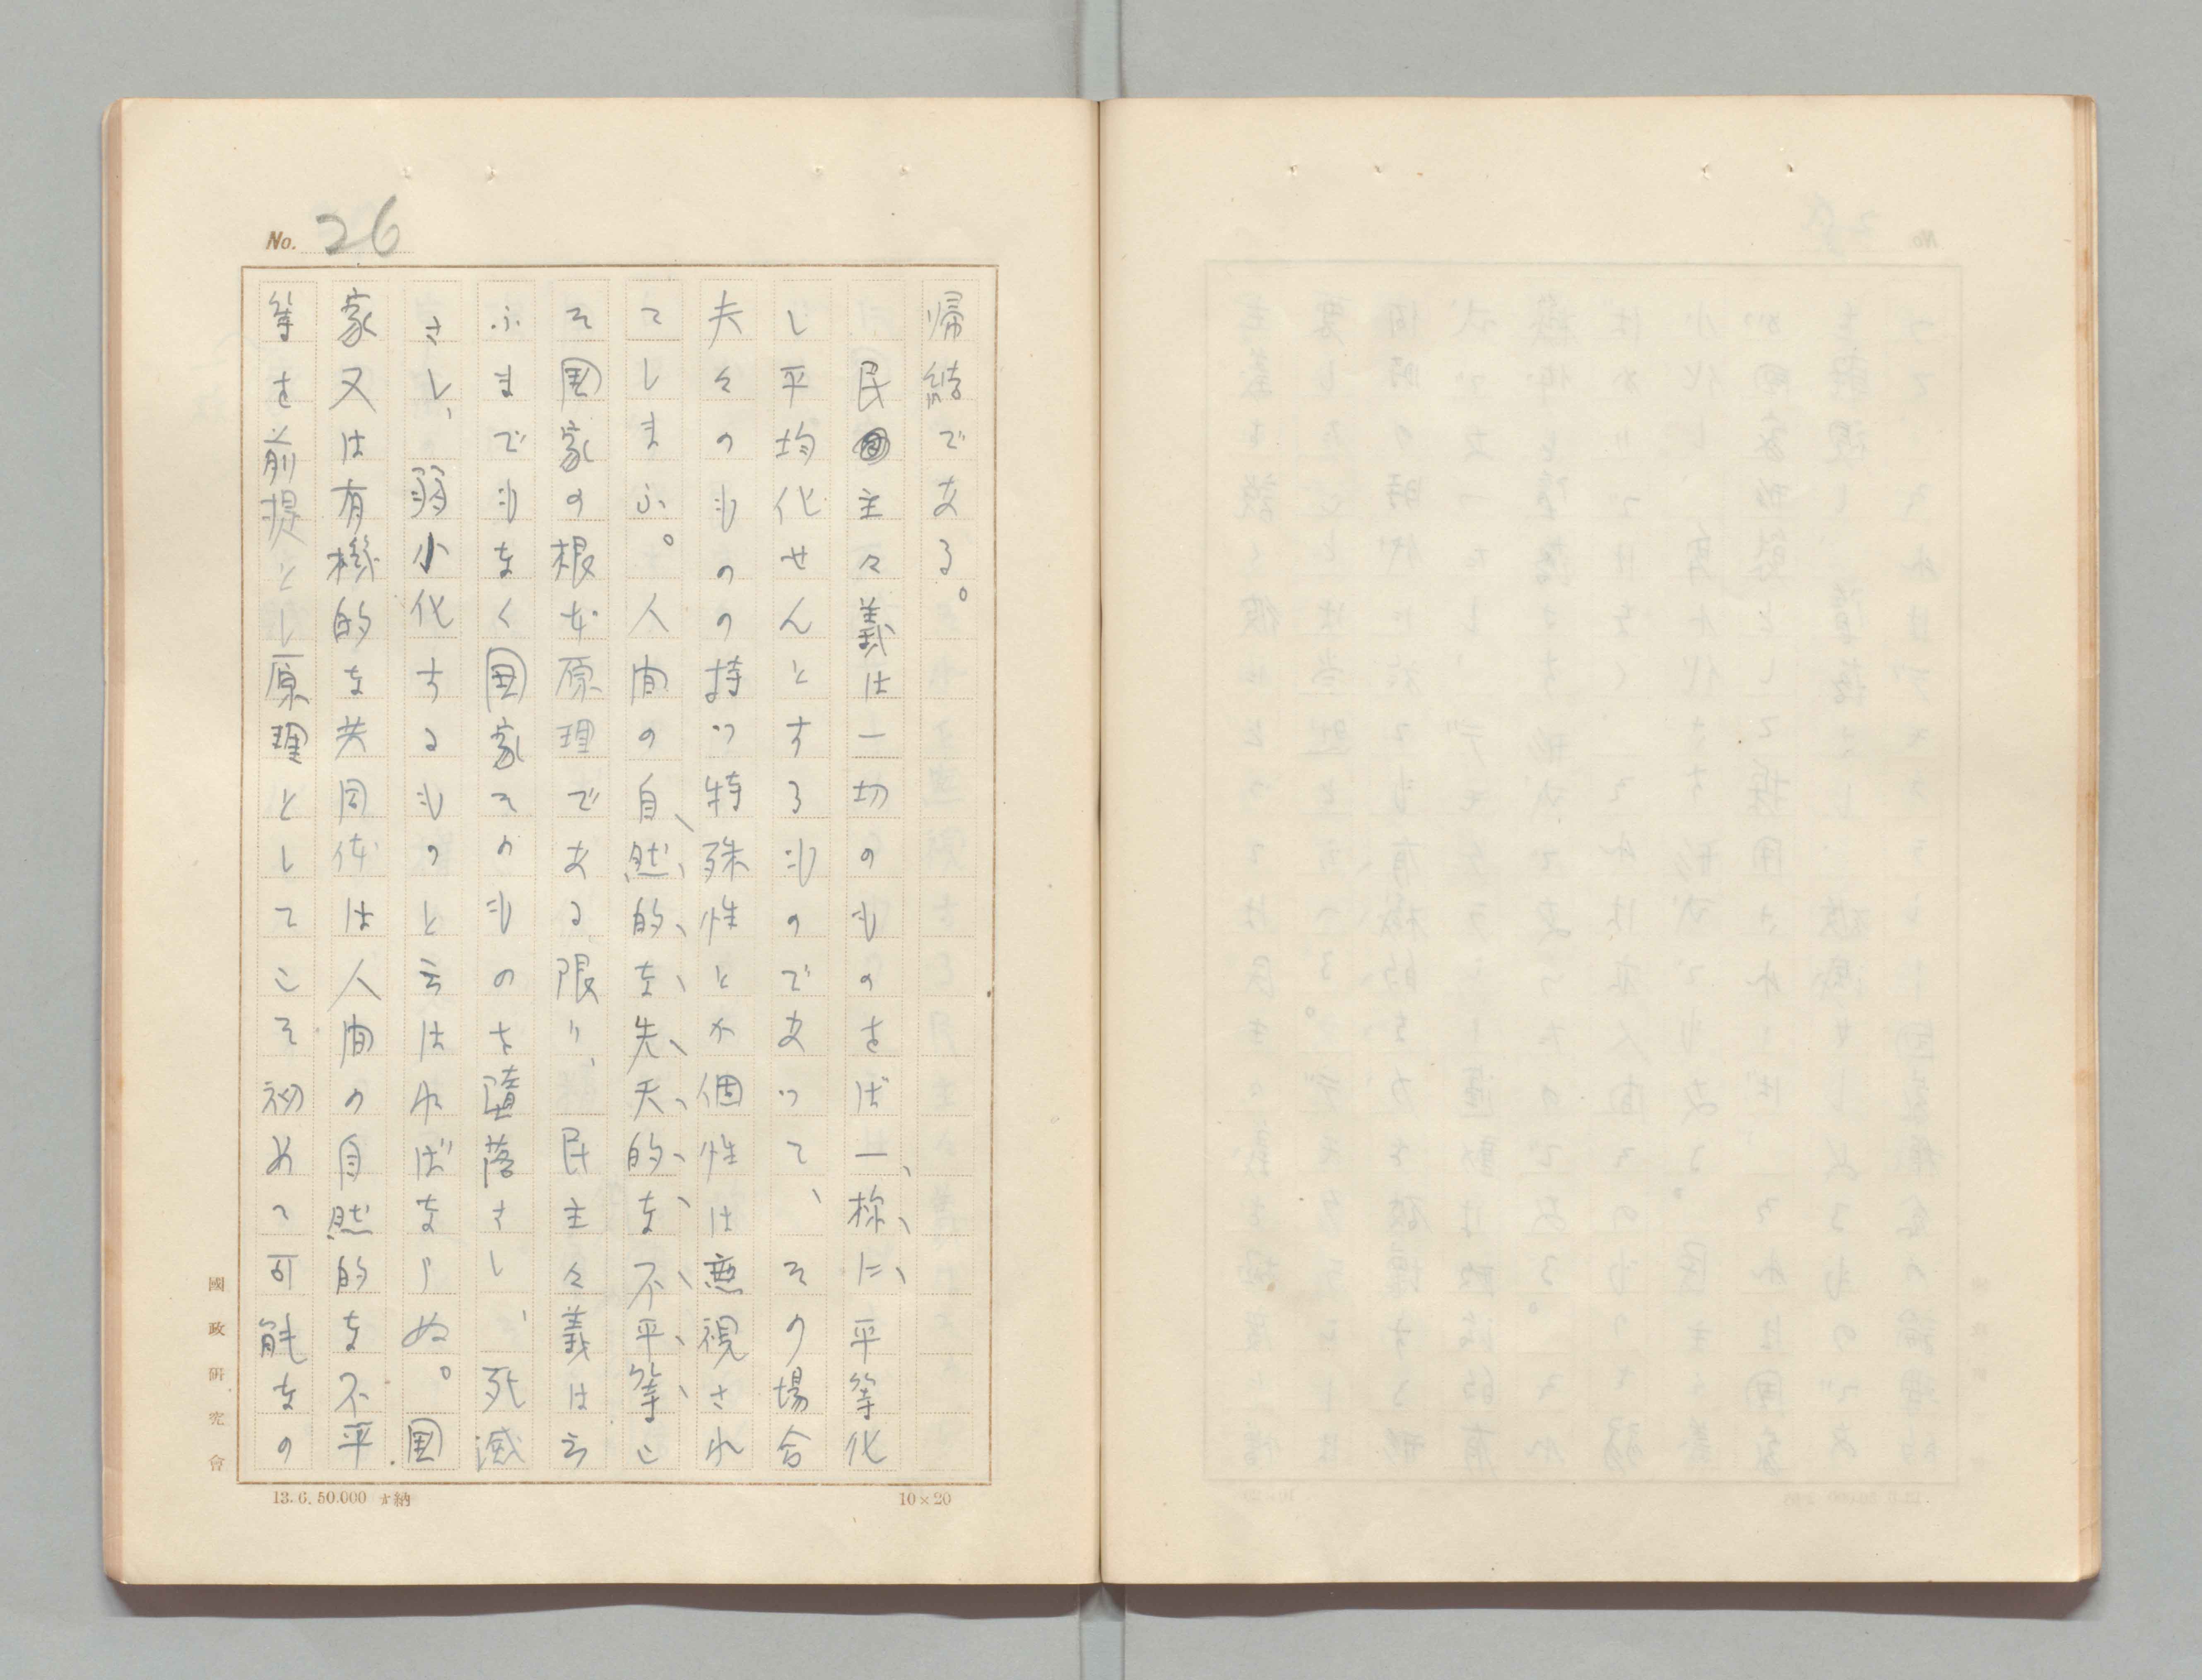 No. 26
帰結である。
民主々義は一切のものをば一様に平等化
し平均化せんとするものであつて、その場合
夫々のものの持つ特殊性とか個性は無視され
てしまふ。人間の自然的な先天的な不平等こ
そ国家の根本原理である限り、民主々義は云
ふまでもなく国家そのものを堕落さし、死滅
さし、弱小化するものと云はねばならぬ。国
家又は有機的な共同体は人間の自然的な不平
等を前提とし原理としてこそ初めて可能なの
國政研究會
13.6.50.000 納
10×20